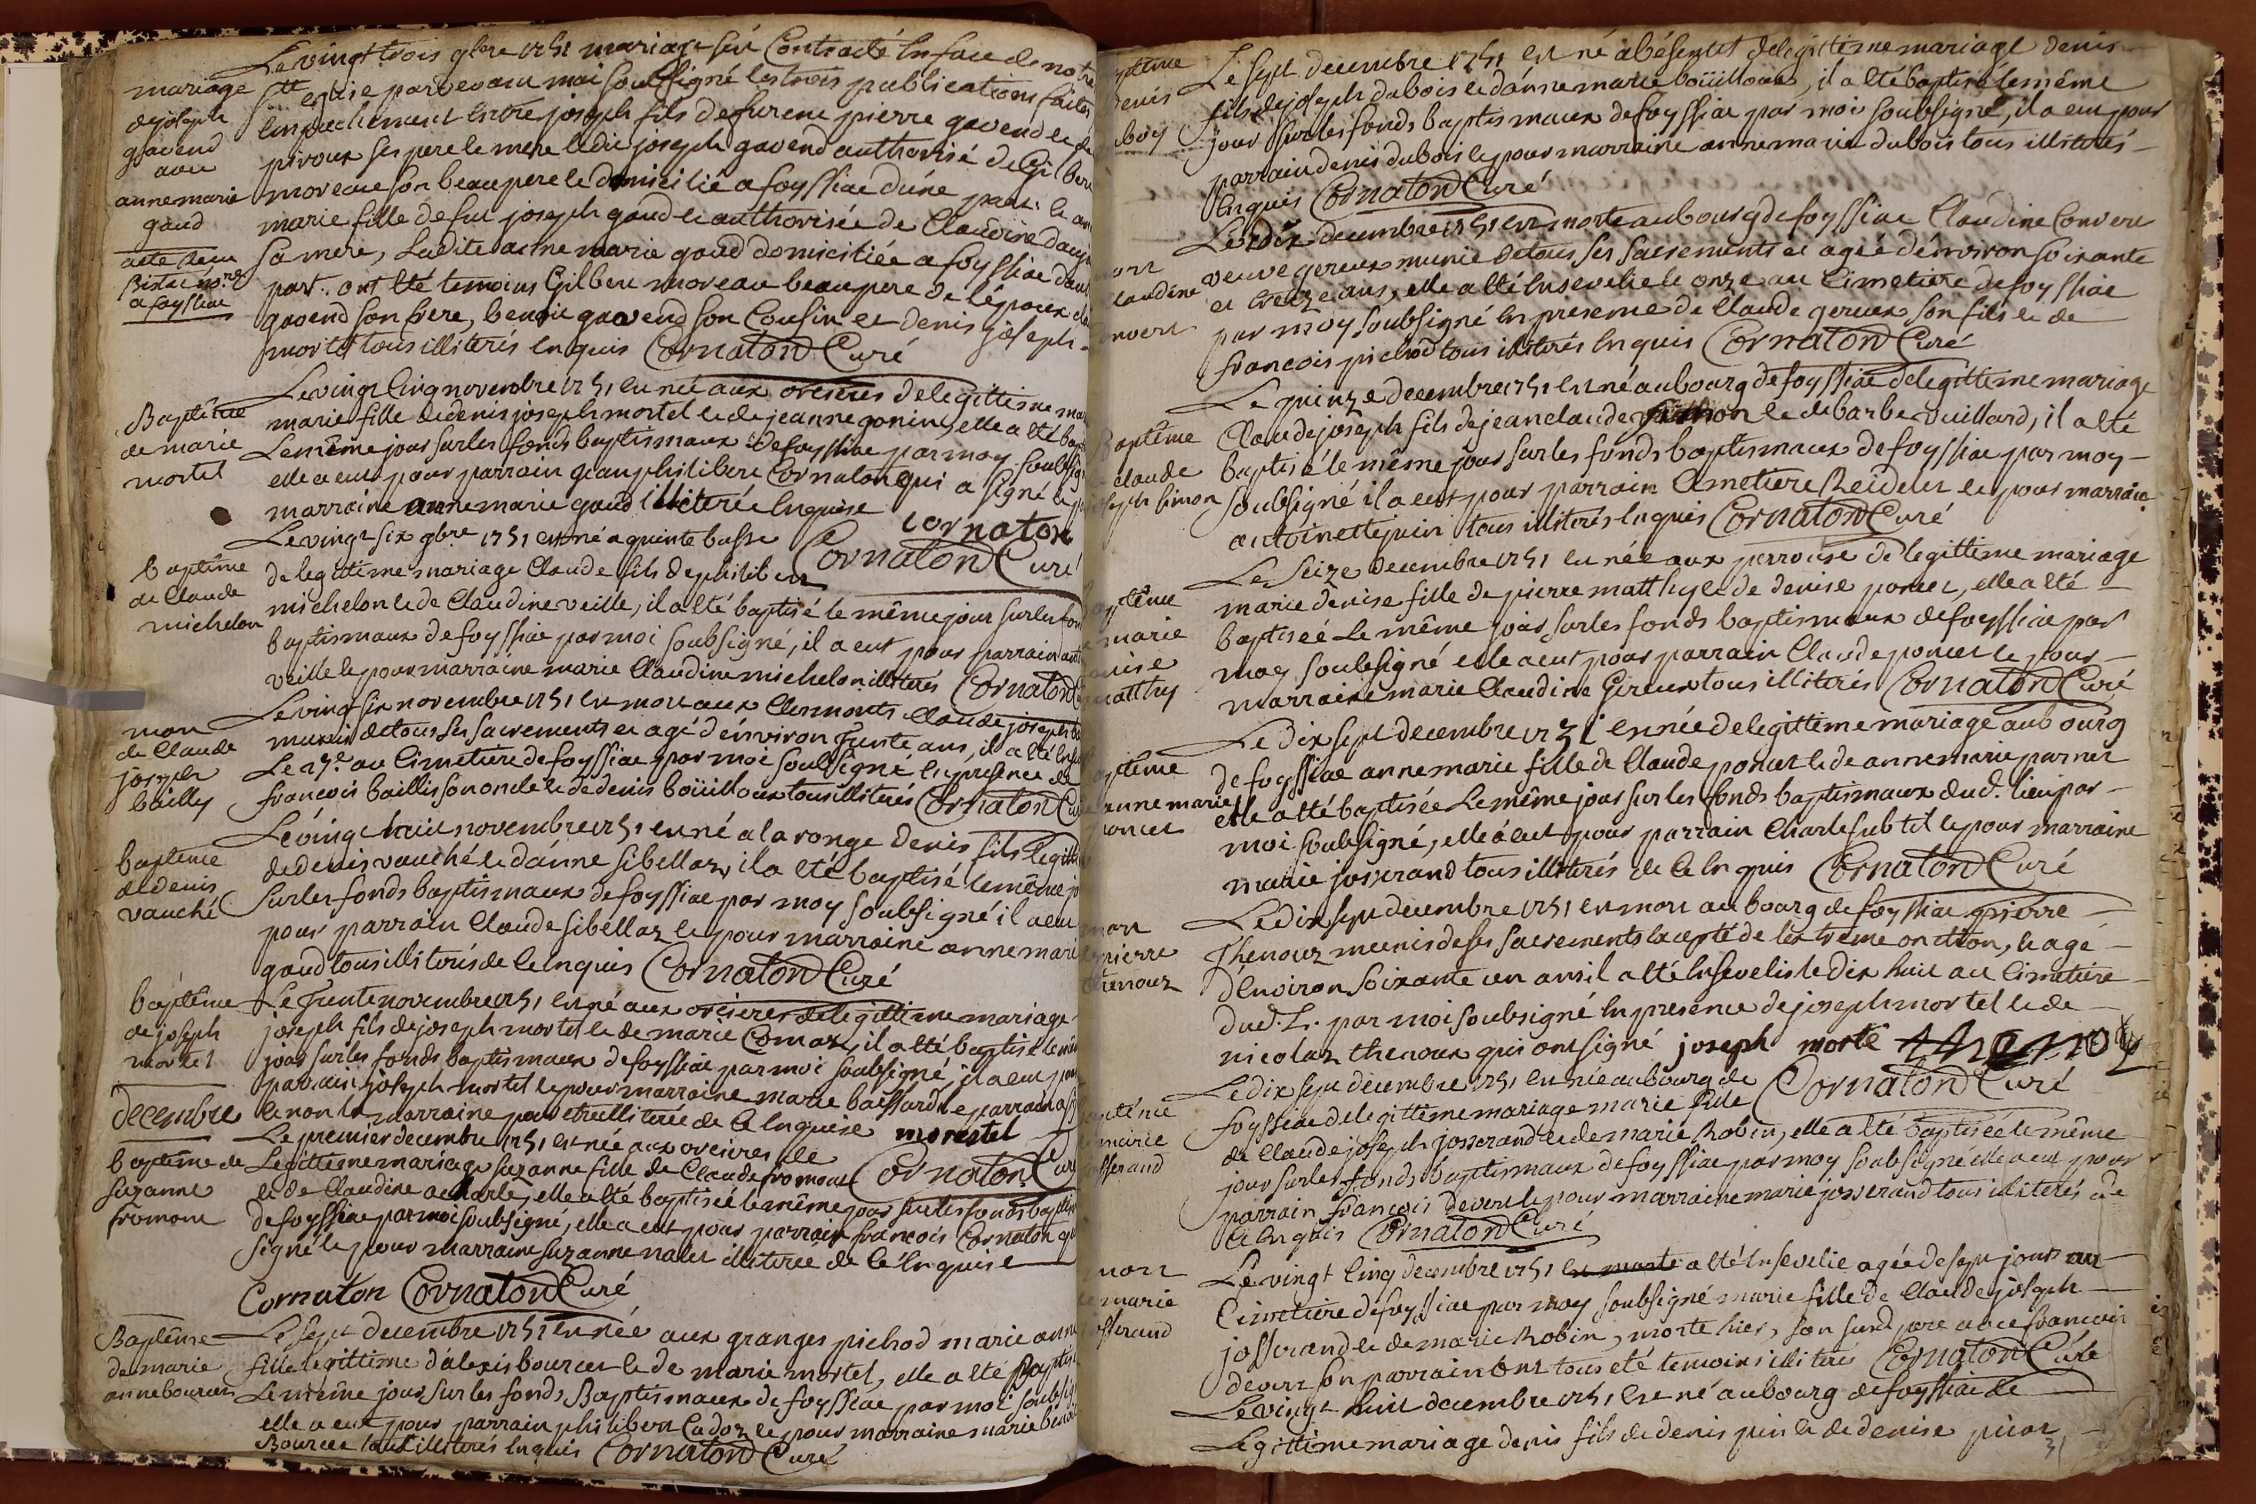 mariage
de joseph
gavend
avec
anne marie
gaud
acte Receu
a foyssiac
Le vingt trois 9bre 1751 mariage fut Contracté En face de notre
Ste eglise pardevant moi soubsigné les trois publications faites
Empechement Entre joseph fils de furent pierre gavend et de
piroux ses pere et mere ledit joseph gavend authorisé de Gilbert
moreau son beaupere et domicilié a foyssiac d'une part. et anne
marie fille de fut joseph gaud et authorisée de Claudine
sa mere, Ladite anne marie gaud domiciliée a foyssiac d'autre
part. ont eté temoins Gilbert moreau beaupere de l'époux
gavend son frere, benoit gavend son Cousin et denis joseph
mortel tous illiterés Enquis Cornaton Curé
Baptême
de marie
mortel
Le vingt Cinq novembre 1751 est née aux oreires de legittime
marie fille de denis joseph mortel et de jeanne gonin, elle a eté
Le même jour sur les fonds baptismaux de foyssiac par moy soubsigné
elle a eut pour parrain jean philibert Cornaton qui a signé et pour
marraine anne marie gaud illiterée Enquise
cornaton
Cornaton Curé
baptême
de Claude
michelon
Le vingt six 9bre 1751 est né a quinte basse
de legittime mariage Claude fils de philibert
michelon et de Claudine veille, il a eté baptisé le même jour sur les fonds
baptismaux de foyssiac par moi soubsigné, il a eut pour parrain
veille et pour marraine marie Claudine michelon illiterés Cornaton
mort
de Claude
joseph
bailly
Le vingt six novembre 1751 est mort aux Clermonts Claude joseph
muni de tous ses sacrements et agé d'environ Trente ans, il a eté
Le 27e. au Cimetiere de foyssiac par moi soubsigné En présence de
francois baillis son oncle et de denis boüilloux tous illiterés Cornaton
baptême
de denis
vauché
Le vingt huit novembre 1751 est né a la ronge denis fils legittime
de denis vauché et d'anne sibellas, il a eté baptisé le même
sur les fonds baptismaux de foyssiac par moy soubsigné il a eut
pour parrain Claude sibellas et pour marraine anne marie
gaud tous illiterés de Ce Enquis Cornaton Curé
baptême
de joseph
mortel
Le Trente novembre 1751 est né aux oreires de legittime mariage
joseph fils de joseph mortel et de marie Comas, il a eté baptisé le même
jour sur les fonds baptismaux de foyssiac par moi soubsigné il a eut pour
parain joseph mortel et pour marraine marie baissard le parrain a
et non la marraine pour etre illiterée de Ce Enquise morestel
Cornaton Curé
Decembre
baptême de
suzanne
fromont
Le premier decembre 1751 est née aux oreires de
Legittime mariage suzanne fille de Claude fromont
et de Claudine acharle, elle a eté baptisée le même jour sur les fonds
de foyssiac par moi soubsigné, elle a eut pour parrain francois Cornaton qui
signé et pour marraine suzanne nalet illiterée de Ce Enquise
Cornaton Cornaton Curé
Baptême
de marie
anne bourcet
Le sept decembre 1751 est née aux granges pichod marie anne
fille legittime d'alexis bourcet et de marie mortel, elle a eté
Le même jour sur les fonds Baptismaux de foyssiac par moi soubsigné
elle a eut pour parrain philibert Cadoz et pour marraine marie
Bourcet tous illiterés Enquis Cornaton Curé
Le sept decembre 1751 est né a bésentet de legittime mariage denis
fils de joseph dubois et d'anne marie boüilloux, il a eté baptisé le même
jour sur les fonds baptismaux de foyssiac par moi soubsigné, il a eut pour
parrain denis dubois et pour marraine anne marie dubois tous illiterés
Enquis Cornaton Curé
Le dix decembre 1751 est morte au bourg de foyssiac Claudine Convert
veuve gereux munie de tous ses sacrements et agée d'environ soixante
et treize ans, elle a eté Ensevelie le onze au Cimetiere de foyssiac
par moy soubsigné En presence de Claude gereux son fils et de
francois pichod tous illiterés Enquis Cornaton Curé
Baptême
claude
joseph simon
Le quinze decembre 1751 est né au bourg de foyssiac de legittime mariage
Claude joseph fils de jean claude simon et de barbe vuillard, il a eté
baptisé le même jour sur les fonds baptismaux de foyssiac par moy
soubsigné il a eut pour parrain Ametiere Reidelet et pour marraine
antoinette juin tous illiterés Enquis Cornaton Curé
marie
denise
matthy
Le Seize decembre 1751 est née aux perrouse de legittime mariage
marie denise fille de pierre matthy et de denise poncet, elle a eté
baptisée Le même jour sur les fonds baptismaux de foyssiac par
moy soubsigné elle a eut pour parrain Claude poncet et pour
marraine marie Claudine Gereux tous illiterés Cornaton Curé
baptême
anne marie
poncet
Le dix sept decembre 1751 est née de legittime mariage au bourg
de foyssiac anne marie fille de Claude poncet et de anne marie parnet
elle a eté baptisée Le même jour sur les fonds baptismaux dud. lieu par
moi soubsigné, elle a eut pour parrain Charle subtil et pour marraine
marie josserand tous illiterés de Ce Enquis Cornaton Curé
mort
pierre
thenoux
Le dix sept decembre 1751 est mort au bourg de foyssiac pierre
Thenoux muni de ses sacrements excepté de l'extreme onction, et agé
d'environ soixante un ans il a eté Enseveli le dix huit au Cimetiere
dud. L. par moi soubsigné En presence de joseph mortel et de
nicolas thenoux qui ont signé joseph mortel thenoux
Cornaton Curé
baptême
marie
josserand
Le dix sept decembre 1751 est née au bourg de
foyssiac de legittime mariage marie fille
de Claude joseph josserand et de marie Robin, elle a eté baptisée le même
jour sur les fonds baptismaux de foyssiac par moy soubsigné elle a eut pour
parrain francois devert et pour marraine marie josserand tous illiterés de
Ce Enquis Cornaton Curé
mort
de marie
josserand
Le vingt Cinq decembre 1751 est morte a eté Ensevelie agée de sept jours au
Cimetiere de foyssiac par moy soubsigné marie fille de Claude joseph
josserand et de marie Robin, morte hier, son susd. pere avec francois
devert son parrain ont tous eté temoins illiterés Cornaton Curé
Le vingt huit decembre 1751 est né au bourg de foyssiac de
Legittime mariage denis fils de denis juin et de denise